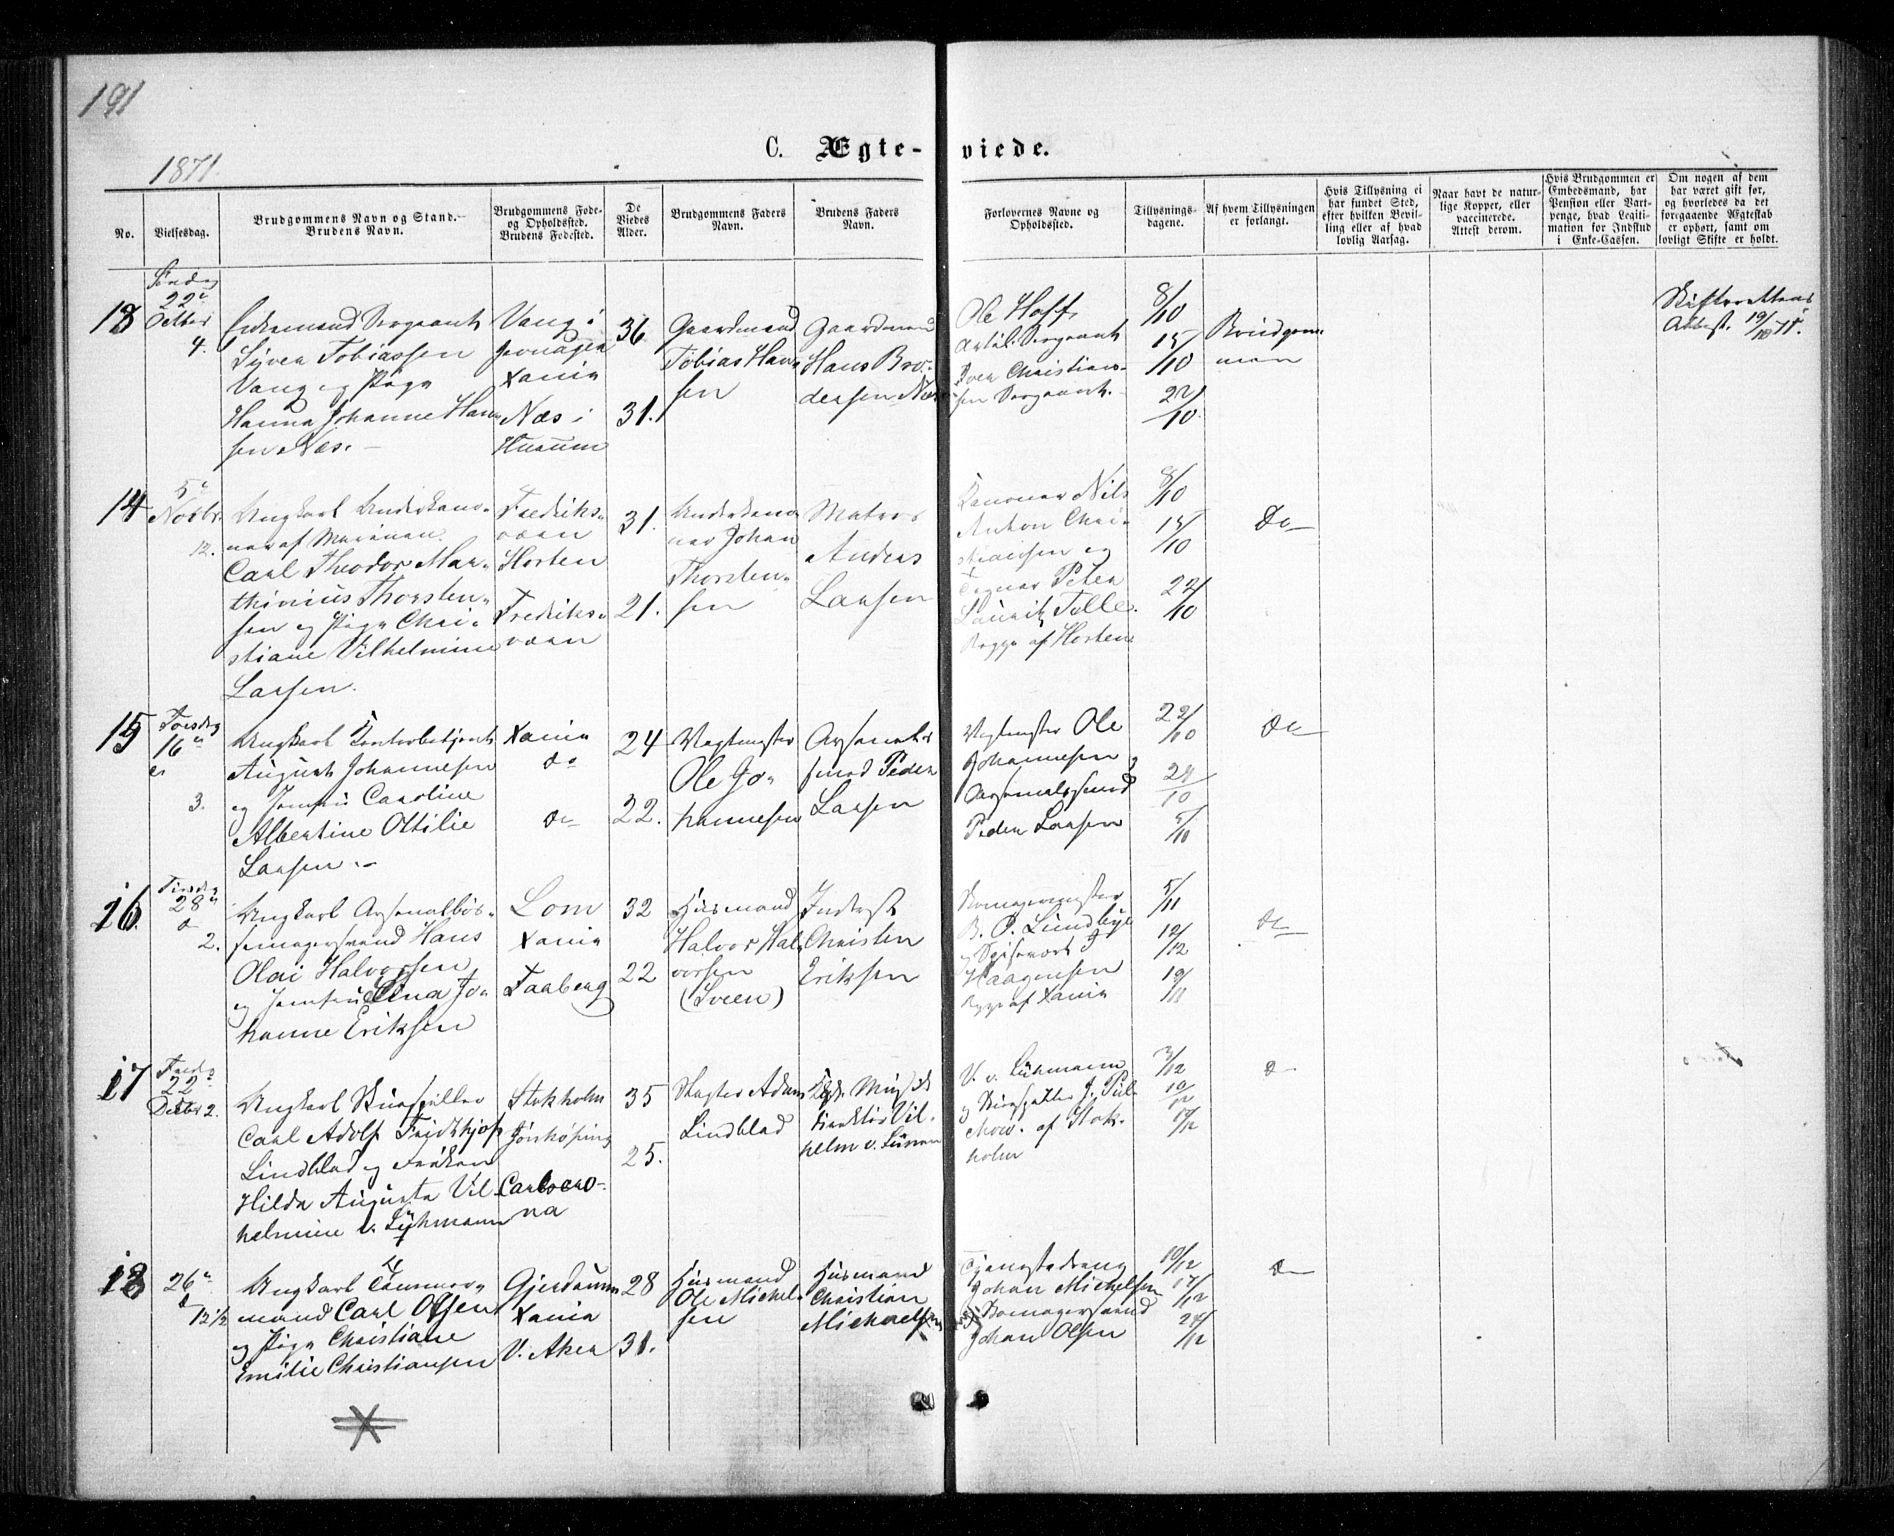 191
1871.
C. Ægte-viede.
No.
Vielsesdag.
Brudgommens Navn og Stand.
Brudens Navn.
Brudgommens Føde-
og Opholdssted.
Brudens Fødested.
De
Viedes
Alder.
Brudgommens Faders
Navn.
Brudens Faders
Navn.
Forlovernes Navne og
Opholdssted.
Tillysnings-
dagene.
Af hvem Tillysningen
er forlangt.
Hvis Tillysning ei
har fundet Sted,
efter hvilken Bevil-
ling eller af hvad
lovlig Aarsag.
Naar havt de natur-
lige Kopper, eller
vaccinerede.
Attest derom.
Hvis Brudgommen er
Embedsmand, har
Pension eller Vart-
penge, hvad Legiti-
mation for Indskud
i Enke-Cassen.
Om nogen af dem
har været gift før,
og hvorledes da det
foregaaende Ægteskab
er ophørt, samt om
lovligt Skifte er holdt.
13
Søndag
22
Octber
4.
Enkemand Sergeant
Syver Tobiassen
Vang og Pige
Hanna Johanne Han-
sen Næs.
Vang i
Xania
Næs i
Husum
36
31.
Gaardmand
Tobias Han-
sen
Gaardmand
Hans Bro-
dersen Næs
Ole Hoff,
Artil. Sergeant
Iver Christian-
sen Sergeant.
8/10
15/10
22/10
Brudgom-
men
Skifterettens
Attest. 19/10 71.
14
5
Novbr.
12.
Ungkarl Underkano-
ner af Marinen
Carl Theodor Mar-
thinius Thorsten-
sen og Pige Chri-
stiane Vilhelmine
Larsen.
Fredriks-
værn
Horten
Fredriks-
værn
31.
21.
Underkano-
ner Johan
Thorsten-
sen
Matros
Anders
Larsen
Kanoner Nils
Anton Chri-
stiansen og
Peter
Lauritz Telle.
Begge af Horten
8/10
15/10
22/10
Do
15
Torsdag
16
3.
Ungkarl Kontorbetjent
August Johannesen
og Jomfru Caroline
Albertine Ottilie
Larsen.
Xania
do
do
24
22.
Vagtmester
Ole Jo-
hannesen
Arsenal-
smed Peder
Larsen
Vagtmester Ole
Johannesen og
Arsenalssmed
Peder Larsen
22/10
29/10
5/11
Do
16.
Tirsdag
28
2.
Ungkarl Arsenalbøs-
semagersvend Hans
Olai Halvorsen
og Jomfru Lina Jo-
hanne Eriksen
Lom
Xania
Faaberg
32
22
Husmand
Halvor Hal-
vorsen
(Sveen)
Inderst
Christen
Eriksen
Skomagermester
B. P. Lundbye
og
Haagensen
Begge af Xania
5/11
12/12
19/11
Do
17
Fredag
22
Decbr 2.
Ungkarl Skuespiller
Carl Adolf Fridthjof
Lindblad og Frøken
Hilda Augusta Vil-
helmine v. Lühmann
Stokholm
Jönköping
Carlscro-
na
35
25.
Slagter Adam
Lindblad
Musik
direktør Vil-
helm v. Lüman
V. v. Lühmann
og Skuespiller J. Pül-
chow. af Stok-
holm
3/12
10/12
17/12
Do
18
26
12 1/2
Ungkarl Tømmer-
mand Carl Olsen
og Pige Christiane
Emilie Christiansen
Gjerdrum
Xania
V. Aker
28
31.
Husmand
Ole Michel-
sen
Husmand
Christian
Michaelsen
Tjenestedreng
Johan Michelsen
Skomagersvend
Johan Olsen
10/12
17/12
24/12
Do